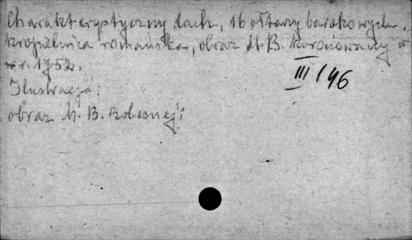 Charakterystyczny dach, 16 ołtarzy barokowych,
kropielnica romańska, obraz M. B. koronowany w
r. 1752.
III/46
Ilustracja:
obraz M. B. Bolesnej;